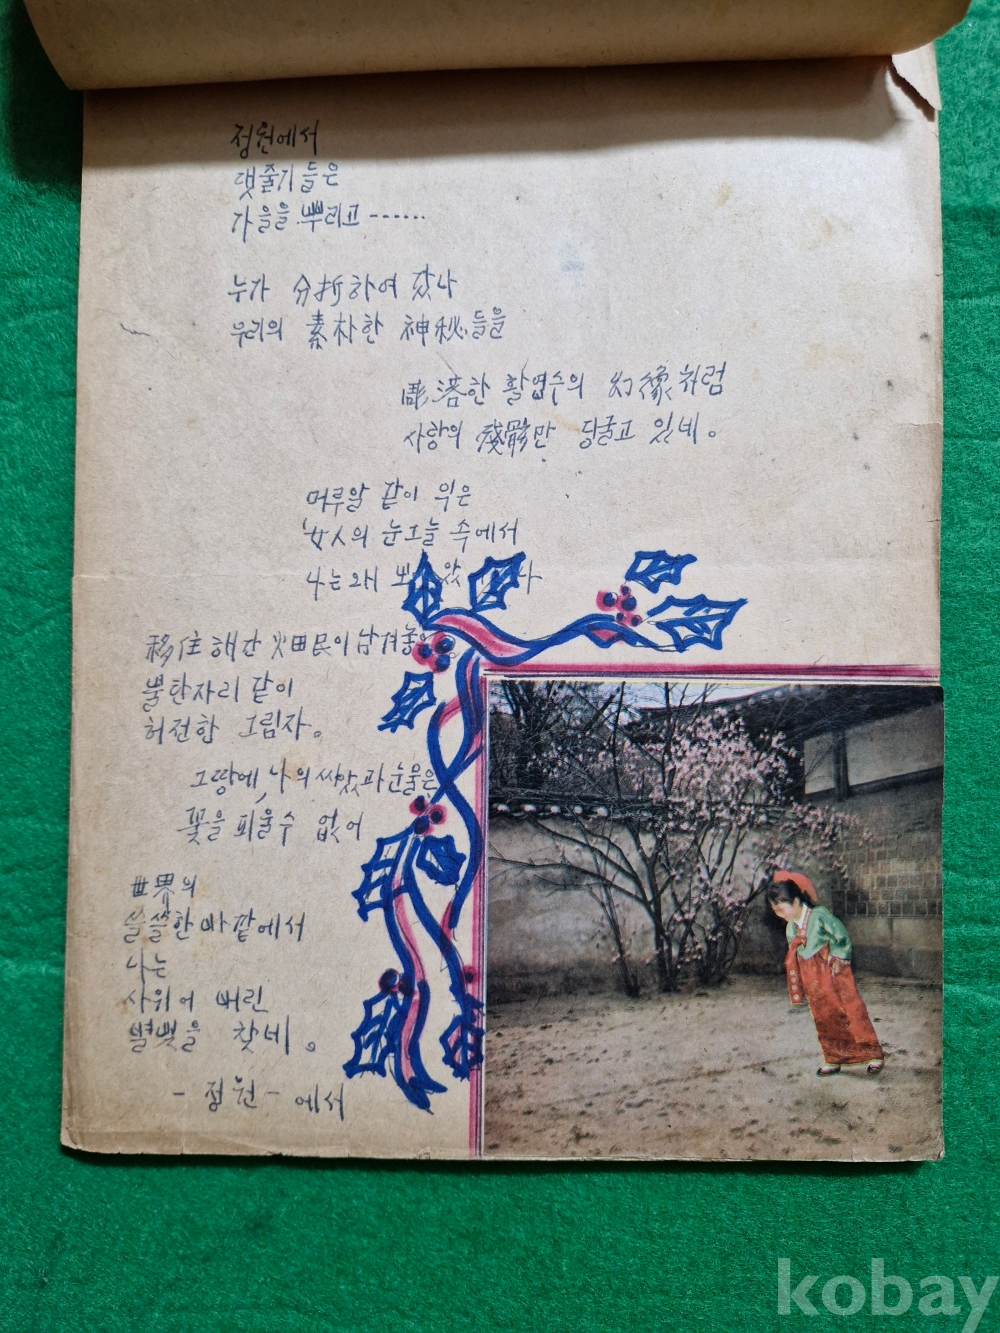 정원에서
댓줄기들은
가을을 뿌리고------
누가 分折하여 갔나
우리의 素朴한 神秘들을
凋落한 활엽수의 幻像처럼
사랑의 殘骸만 딩굴고 있네。
머루알 같이 익은
女人의 눈그늘 속에서
나는 왜
移住해간 火田民이 남겨놓은
불탄자리 같이
허전한 그림자。
그 땅에, 나의 씨앗과 눈물은
꽃을 피울수 없어
世界의
쓸쓸한 바깥에서
나는
사위어 버린
별빛을 찾네。
- 정원 - 에서
kobay